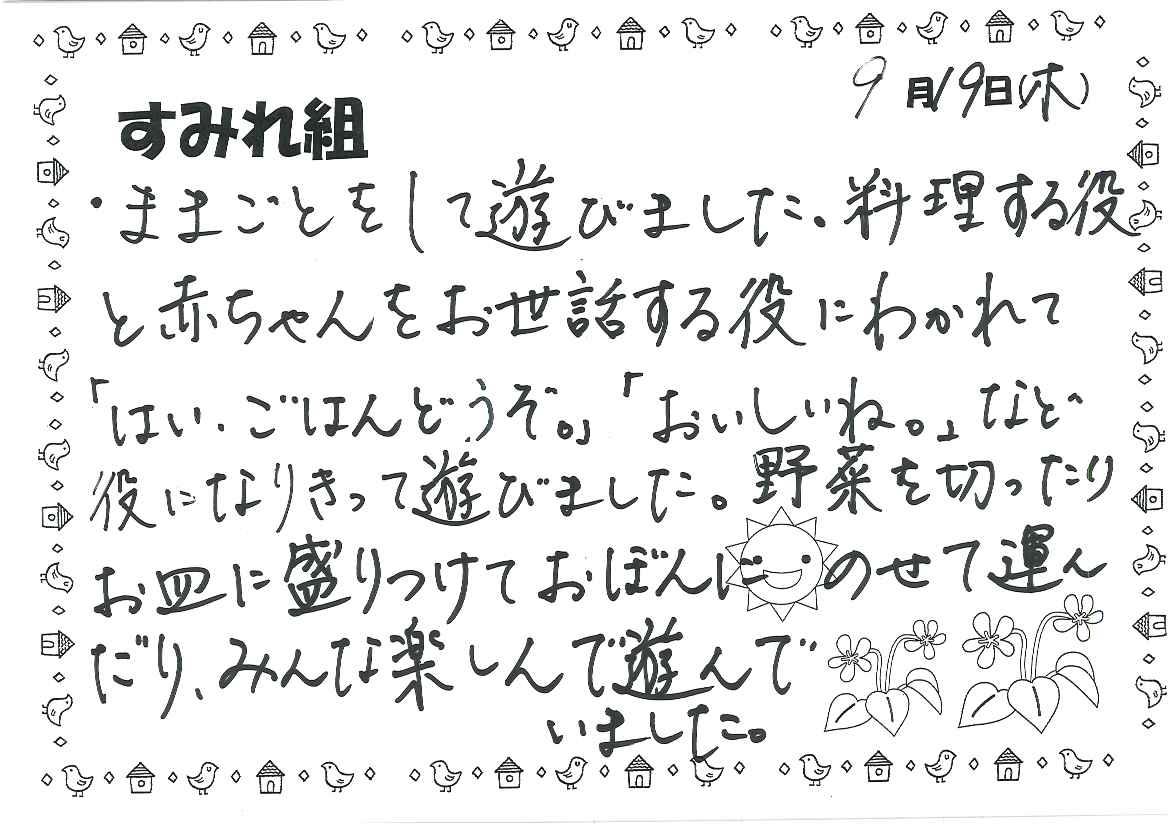 9月19日(木)
すみれ組
・ままごとをして遊びました。料理する役
と赤ちゃんをお世話する役にわかれて
「はい、ごはんどうぞ。」「おいしいね。」など
役になりきって遊びました。野菜を切ったり
お皿に盛りつけておぼんにのせて運ん
だり、みんな楽しんで遊んで
いました。